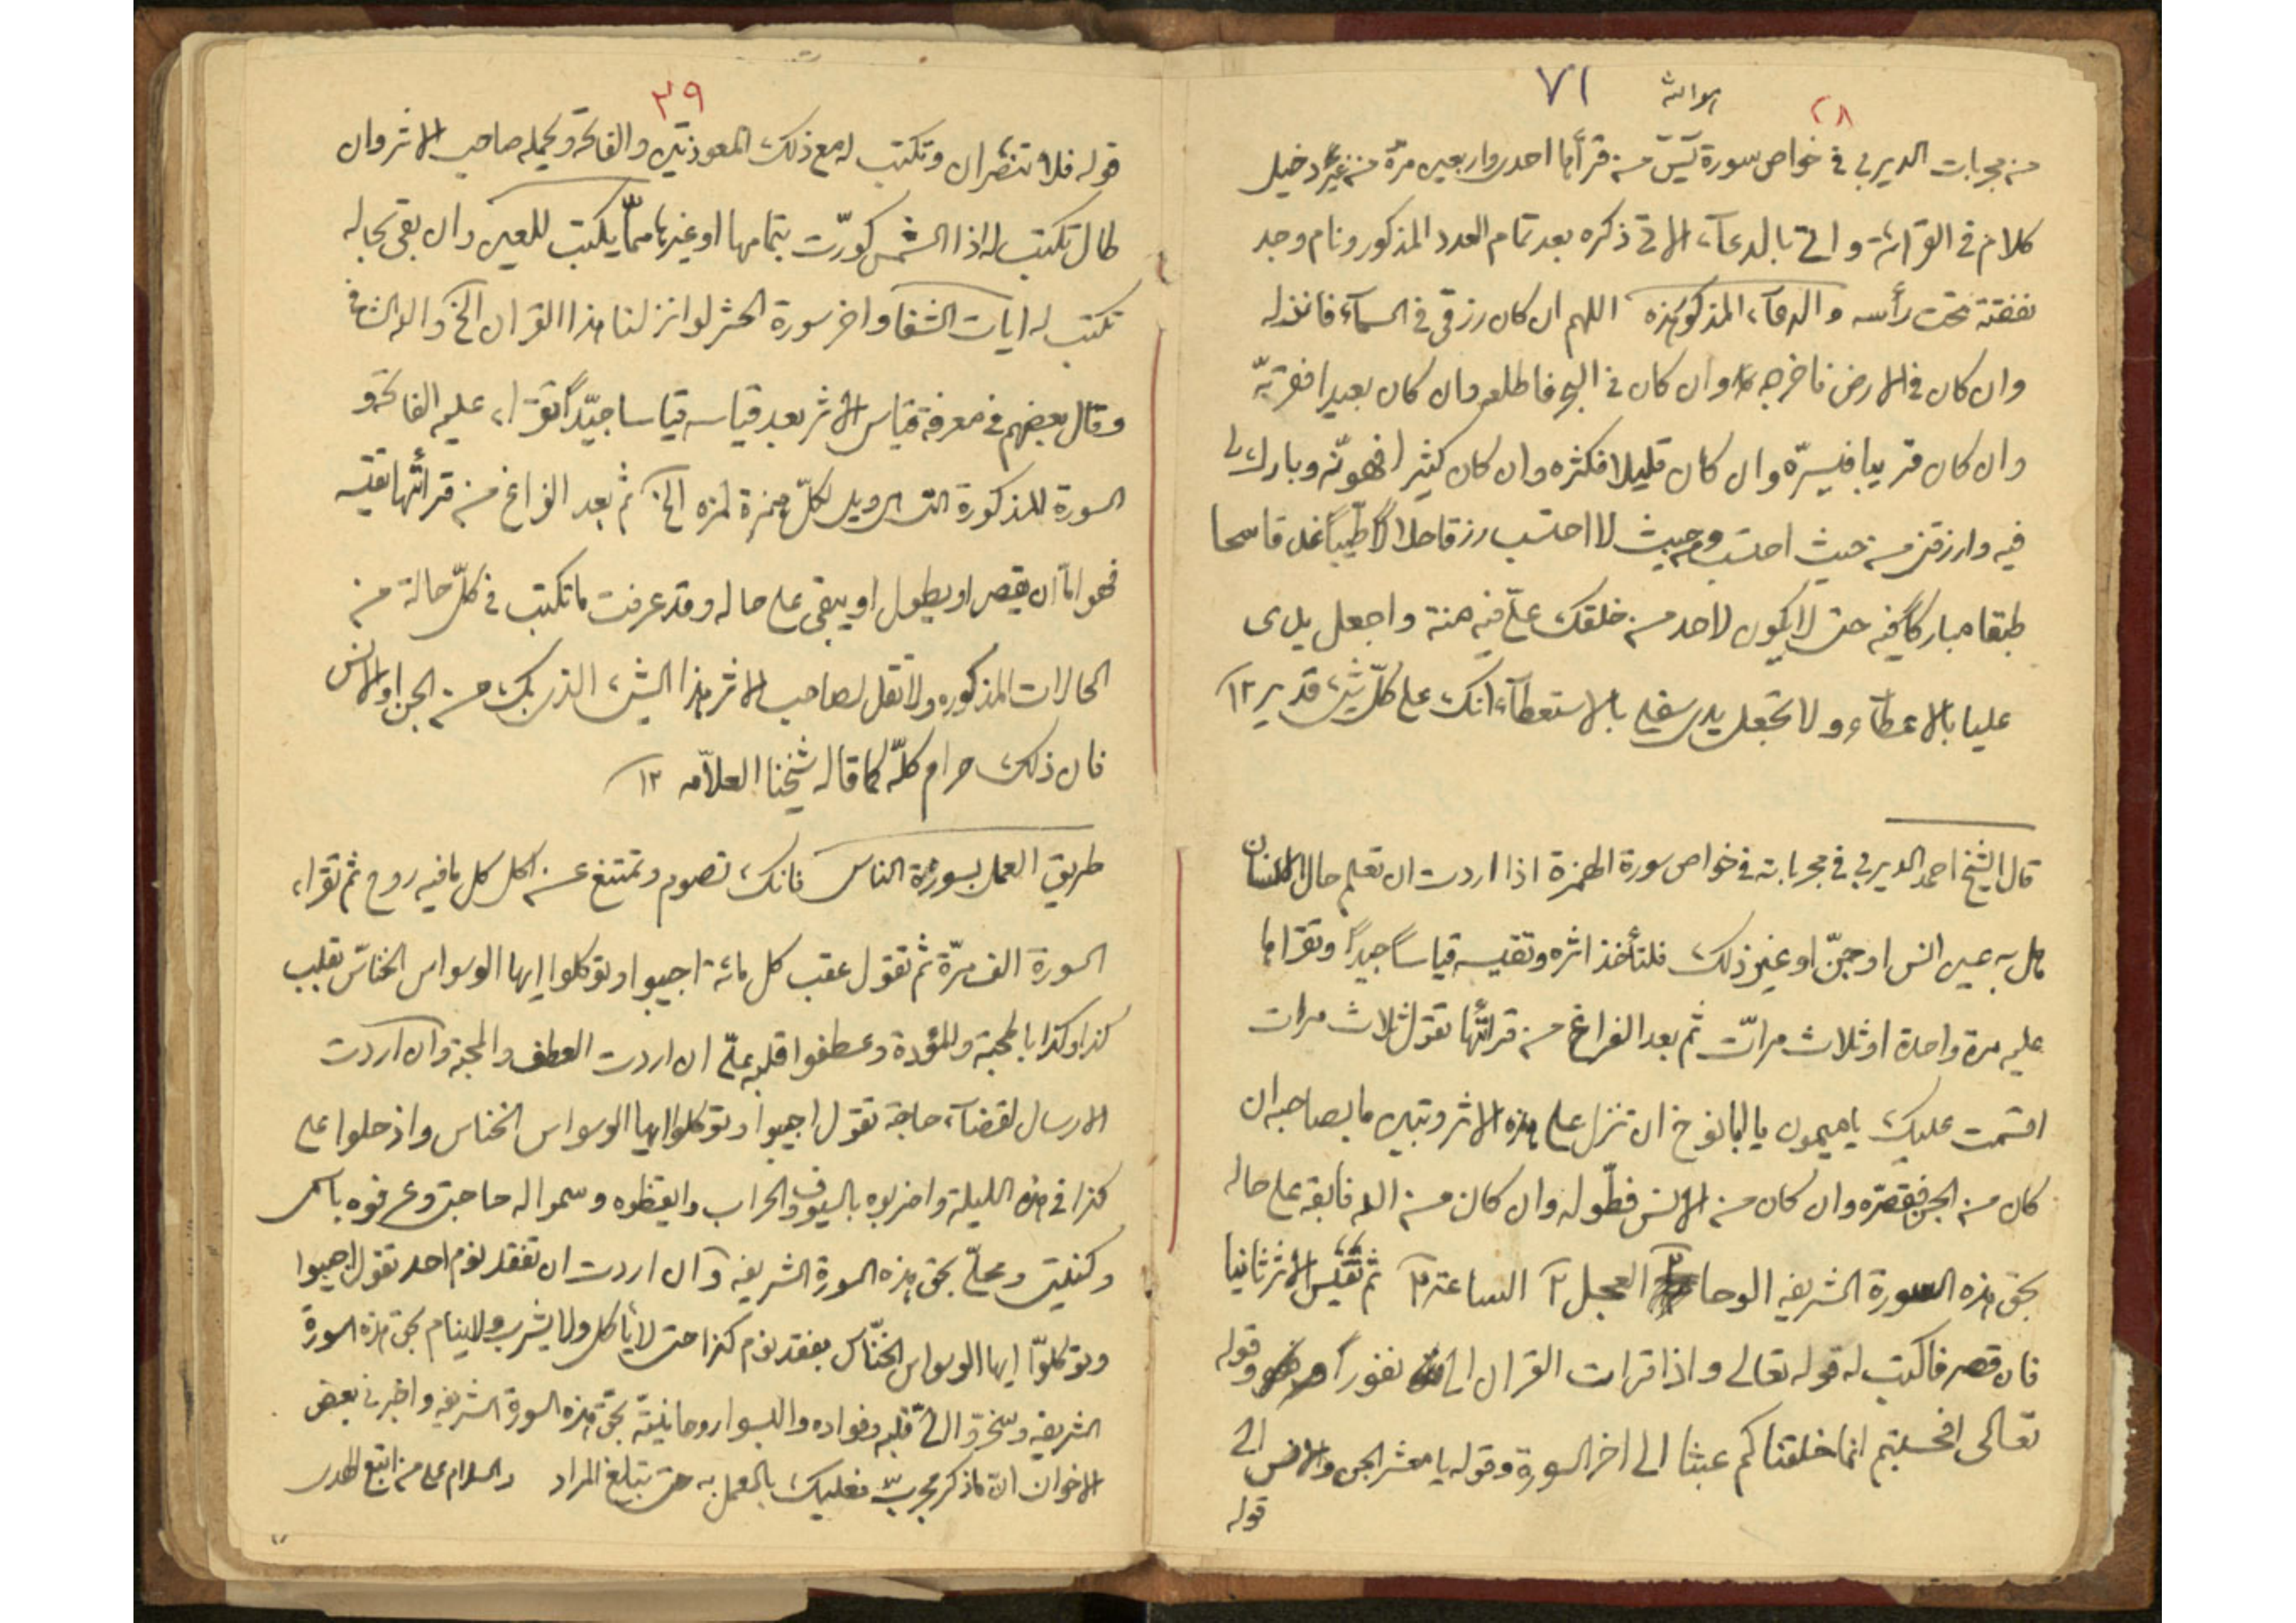 ٢٨
٧١
من مجربات الديربي في خواص سورة يٓسٓ من قرأها احدى واربعين مرة من غير دخيل
كلام في القرائة واتى بالدعآء الاتى ذكره بعد تمام العدد المذكور ونام وجد
نفقته تحت رأسه والدعآء المذكور هذه اللهم ان كان رزقى في السمآء فانزله
وان كان في الارض فاخرجه وان كان في البحر فاطلعه وان كان بعيدا فقربّه
وان كان قريبا فيسرّه وان كان قليلا فكثره وان كان كثيرا فهونّه وبارك لى
فيه وارزقنى من حيث احتسب ومن حيث لا احتسب رزقا حلالاً طيّباً غدقا سحا
طبقا مباركاً فيه حتى لا يكون لاحد من خلقك علىّ فيه منة واجعل يدى
عليا بالاعطآء ولا تجعل يدى سفلى بالاستعطآء انك على كلّ شئ قدير ١٢
قال الشيخ احمد الديربي في مجرباته في خواص سورة الهمزة اذا اردت ان تعلم حال الانسان
هل به عين انس او جنّ او غير ذلك فلتأخذ اثره وتقيسه قياساً جيداً وتقراها
عليه مرة واحدة او ثلاث مراتّ ثم بعد الفراغ من قرائتها تقول ثلاث مرات
اقسمت عليك ياميمون يا ابانوخ ان تنزل على هذه الاثر وتبين ما بصاحبه ان
كان من الجن فقصرّه وان كان من الانس فطوّله وان كان من الله فابقه على حاله
بحق هذه السورة الشريفه الوحا ٢ العجل ٢ الساعة ٢ ثم تقيس الاثر ثانيا
فان قصر فاكتب له قوله تعالى واذا قرات القران الى نفوراً وقوله
تعالى افحسبتم انما خلقناكم عبثا الى اخر السورة وقوله يا معشر الجن والانس الى
قوله
٣٩
قوله فلا تنتصران وتكتب له مع ذلك المعوذتين والفاتحة ويحمله صاحب الاثر وان
طال تكتب له اذا الشمس كورّت بتمامها او غيرها ممّا يكتب للعين وان بقى بحاله
تكتب له ايات الشفا واخر سورة الحشر لو انزلنا هذا القران الخ والله الشافى
وقال بعضهم في معرفة قياس الاثر بعد قياسه قياسا جيّداً تقراء عليه الفاتحة و
السورة المذكورة التى هى ويل لكلّ همزة لمزه الخ ثم بعد الفراغ من قرائتها تقيسه
فهو امّا ان يقصر او يطول او يبقى على حاله وقد عرفت ما تكتب في كلّ حالة من
الحالات المذكوره ولا تقل لصاحب الاثر هذا الشئ الذى بك من الجن او الانس
فان ذلك حرام كلّه كما قاله شيخنا العلاّمه ١٢
طريق العمل بسورة الناس فانك تصوم وتمتنع عن اكل كل ما فيه روح ثم تقراء
السورة الف مرّة ثم تقول عقب كل مائة اجيبوا وتوكلوا ايها الوسواس الخناسّ بقلب
كذا وكذا بالمحبّة والمؤدة وعطفوا قلبه علىّ ان اردت العطف والمحبة وان اردت
الارسال لقضآء حاجة تقول اجيبوا وتوكلوا ايها الوسواس الخناس واذخلوا على
كذا في هذه الليلة واضربوه بالسيوف والحراب وايقظوه وسموا له حاجتى وعرفوه باسمى
وكنيتى ومحلّى بحق هذه السورة الشريفه وآن اردت ان تفقد نوم احد تقول اجيبوا
وتوكلوّا ايها الوسواس الخنّاس بفقد نوم كذا حتى لا يأكل ولا يشرب ولا ينام بحق هذه السورة
الشريفه وسخروّا الىّ قلبه وفواده والبسوا روحانيتّه بحق هذه السورة الشريفه واخبرنى بعض
الاخوان انّ ماذكر مجربّ فعليك بالعمل به حتى تبلغ المراد والسلام على من اتبع الهدى